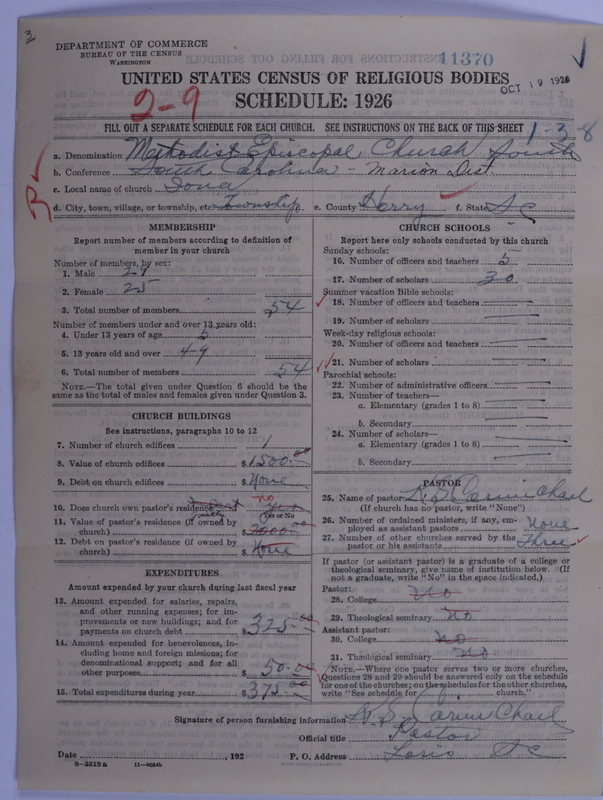 3
DEPARTMENT OF COMMERCE
BUREAU OF THE CENSUS
WASHINGTON
11370
OCT 19 1926
UNITED STATES CENSUS OF RELIGIOUS BODIES
2-9
SCHEDULE: 1926
FILL OUT A SEPARATE SCHEDULE FOR EACH CHURCH. SEE INSTRUCTIONS ON THE BACK OF THIS SHEET
1-3-8
a. Denomination Methodist Episcopal Church South
b. Conference South Carolina - Marion Dist.
c. Local name of church Iona
d. City, town, village, or township, etc. Township e. County Horry f. State S C
MEMBERSHIP
Report number of members according to definition of
member in your church
Number of members, by sex:
1. Male 29
2. Female 25
3. Total number of members 54
Number of members under and over 13 years old:
4. Under 13 years of age 5
5. 13 years old and over 49
6. Total number of members 54
NOTE.—The total given under Question 6 should be the
same as the total of males and females given under Question 3.
CHURCH BUILDINGS
See instructions, paragraphs 10 to 12
7. Number of church edifices 1
8. Value of church edifices $1500.00
9. Debt on church edifices $ None
10. Does church own pastor's residence no
(Yes or No)
11. Value of pastor's residence (if owned by
church) $
12. Debt on pastor's residence (if owned by
church) $ None
EXPENDITURES
Amount expended by your church during last fiscal year
13. Amount expended for salaries, repairs,
and other running expenses; for im-
provements or new buildings; and for
payments on church debt $325.00
14. Amount expended for benevolences, in-
cluding home and foreign missions; for
denominational support; and for all
other purposes $50.00
15. Total expenditures during year $375.00
CHURCH SCHOOLS
Report here only schools conducted by this church
Sunday schools:
16. Number of officers and teachers 5
17. Number of scholars 30
Summer vacation Bible schools:
18. Number of officers and teachers
19. Number of scholars
Week-day religious schools:
20. Number of officers and teachers
21. Number of scholars
Parochial schools:
22. Number of administrative officers
23. Number of teachers—
a. Elementary (grades 1 to 8)
b. Secondary
24. Number of scholars—
a. Elementary (grades 1 to 8)
b. Secondary
PASTOR
25. Name of pastor Carmichael
(If church has no pastor, write "None")
26. Number of ordained ministers, if any, em-
ployed as assistant pastors None
27. Number of other churches served by the
pastor or his assistants Three
If pastor (or assistant pastor) is a graduate of a college or
theological seminary, give name of institution below. (If
not a graduate, write "No" in the space indicated.)
Pastor:
28. College No
29. Theological seminary no
Assistant pastor:
30. College no
31. Theological seminary no
NOTE.—Where one pastor serves two or more churches,
Questions 28 and 29 should be answered only on the schedule
for one of the churches; on the schedules for the other churches,
write "See schedule for church."
Signature of person furnishing information Carmichael
Official title Pastor
Date , 192 P. O. Address Loris S C
8-5513a 11-9034b